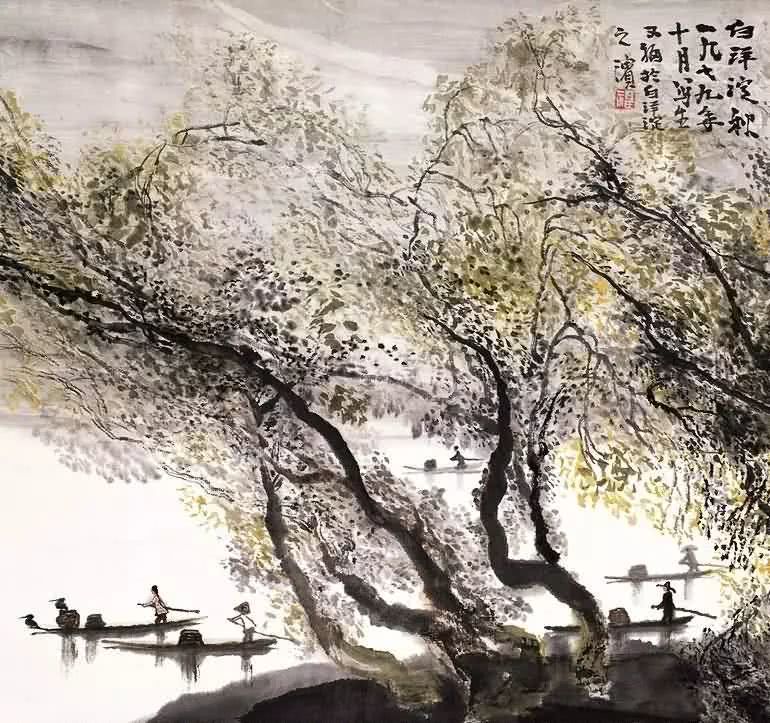 白洋淀秋
一九七九年
十月写生
于白洋淀
之滨